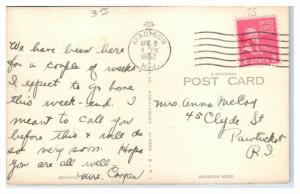 35¢
MADISON
APR 2
4 PM
1952
N.J.
UNITED STATES
2 CENTS
POST CARD
We have been here
for a couple of weeks.
I expect to go home
this week-end. I
meant to call you
before this & will do
so very soon. Hope
you are all well
Mrs. Cooper
Mrs. Anna McCoy
45 Clyde St
Pawtucket
R.I.